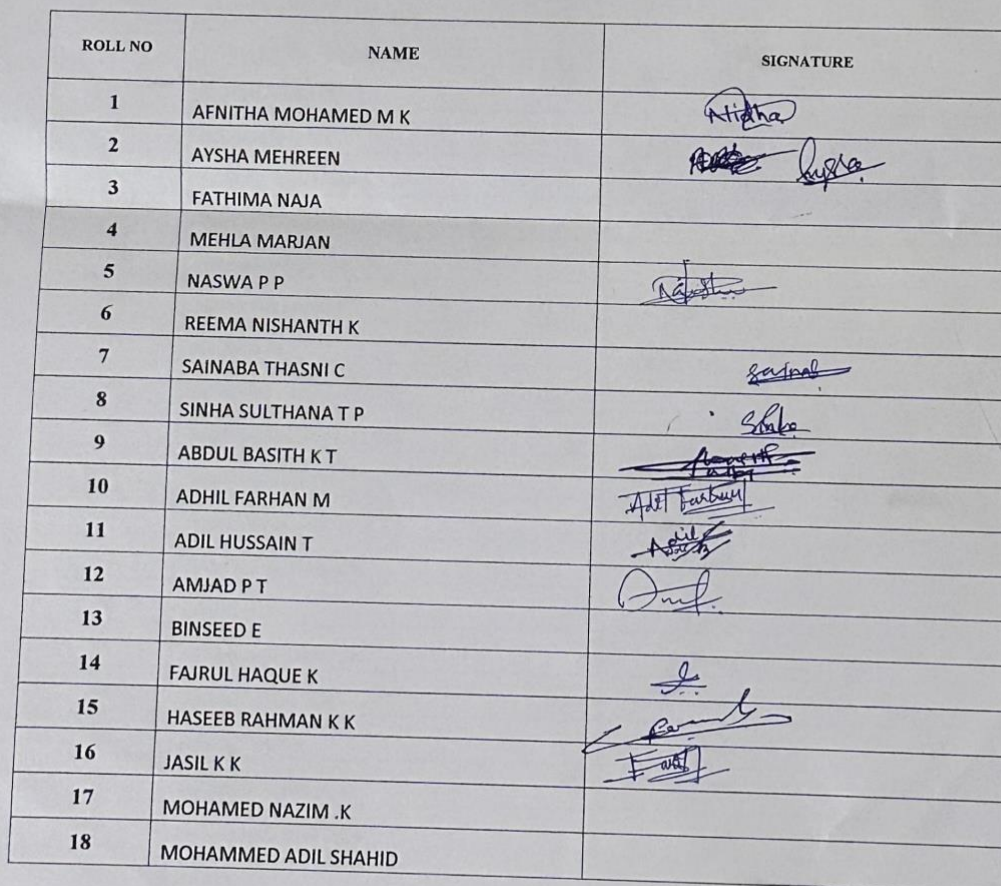 ROLL NO NAME SIGNATURE
1 AFNITHA MOHAMED M K Nidha
2 AYSHA MEHREEN Aysha
3 FATHIMA NAJA
4 MEHLA MARJAN
5 NASWA P P
6 REEMA NISHANTH K
7 SAINABA THASNI C Sainab
8 SINHA SULTHANA T P
9 ABDUL BASITH K T
10 ADHIL FARHAN M
11 ADIL HUSSAIN T Adil
12 AMJAD P T
13 BINSEED E
14 FAJRUL HAQUE K
15 HASEEB RAHMAN K K
16 JASIL K K
17 MOHAMED NAZIM .K
18 MOHAMMED ADIL SHAHID